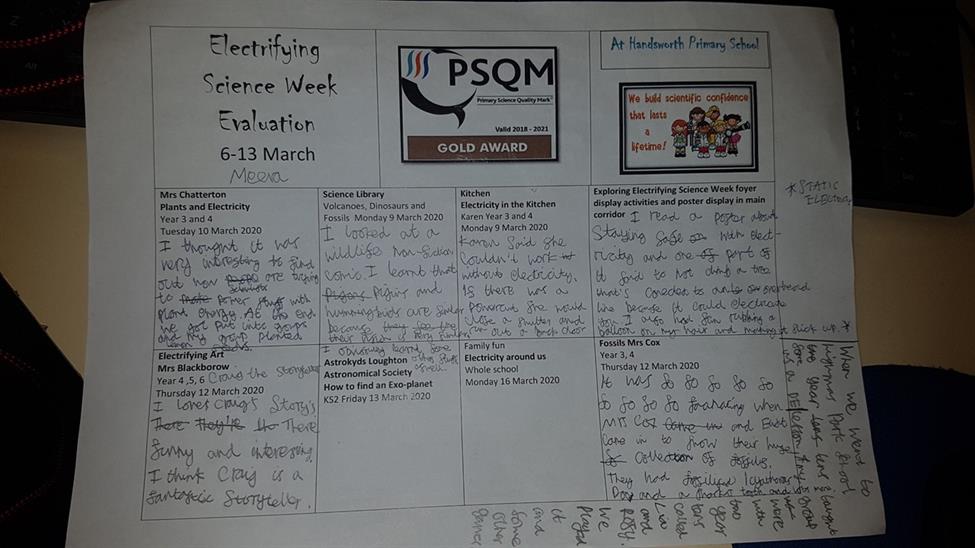 Electrifying
Science Week
Evaluation
6-13 March
Meera
PSQM
Primary Science Quality Mark
Valid 2018 - 2021
GOLD AWARD
At Handsworth Primary School
We build scientific confidence
that lasts
a
lifetime!
Mrs Chatterton
Plants and Electricity
Year 3 and 4
Tuesday 10 March 2020
I thought it was
very interesting to find
out how are trying
scientists
to power things with
plant energy. At the end
we got put into groups
and my group planted
lemon seeds.
Science Library
Volcanoes, Dinosaurs and
Fossils Monday 9 March 2020
I looked at a
wildlife Non-fiction
comic. I learnt that
and
hummingbirds are similar
because
their is very similar
I obviously learnt some
other stuff
Kitchen
Electricity in the Kitchen
Karen Year 3 and 4
Monday 9 March 2020
Karen Said she
Couldn't work
without electricity.
If there was a
powercut she would
close a shutter and
out a back door
Exploring Electrifying Science Week foyer
display activities and poster display in main
corridor I read a poster about
Staying safe with elect-
ricity and one part of
it said to not climb a tree
that's overhead
line because it could electricute
you I also had fun rubbing a
balloon on my hair and making it stick up. *
* STATIC
ELECTRICITY
Electrifying Art
Mrs Blackborow
Year 4 ,5, 6 Craig the storyteller
Thursday 12 March 2020
I loves Craig's Story's.
There They're There
funny and interesting.
I think Craig is a
fantastic Storyteller.
Astrokyds Loughton
Astronomical Society
How to find an Exo-planet
KS2 Friday 13 March 2020
Family fun
Electricity around us
Whole school
Monday 16 March 2020
Fossils Mrs Cox
Year 3, 4
Thursday 12 March 2020
It was so so so so so
so so so so when
Mrs Cox came in and
Came in to show their huge
Collection of fossils.
They had fossilised
Poo and a shark's tooth and
When we went to
highams Park School
year tens taught
were
with
two
year
tens
called
Lia
and
Rosy.
We
Played
it
and
some
other
games